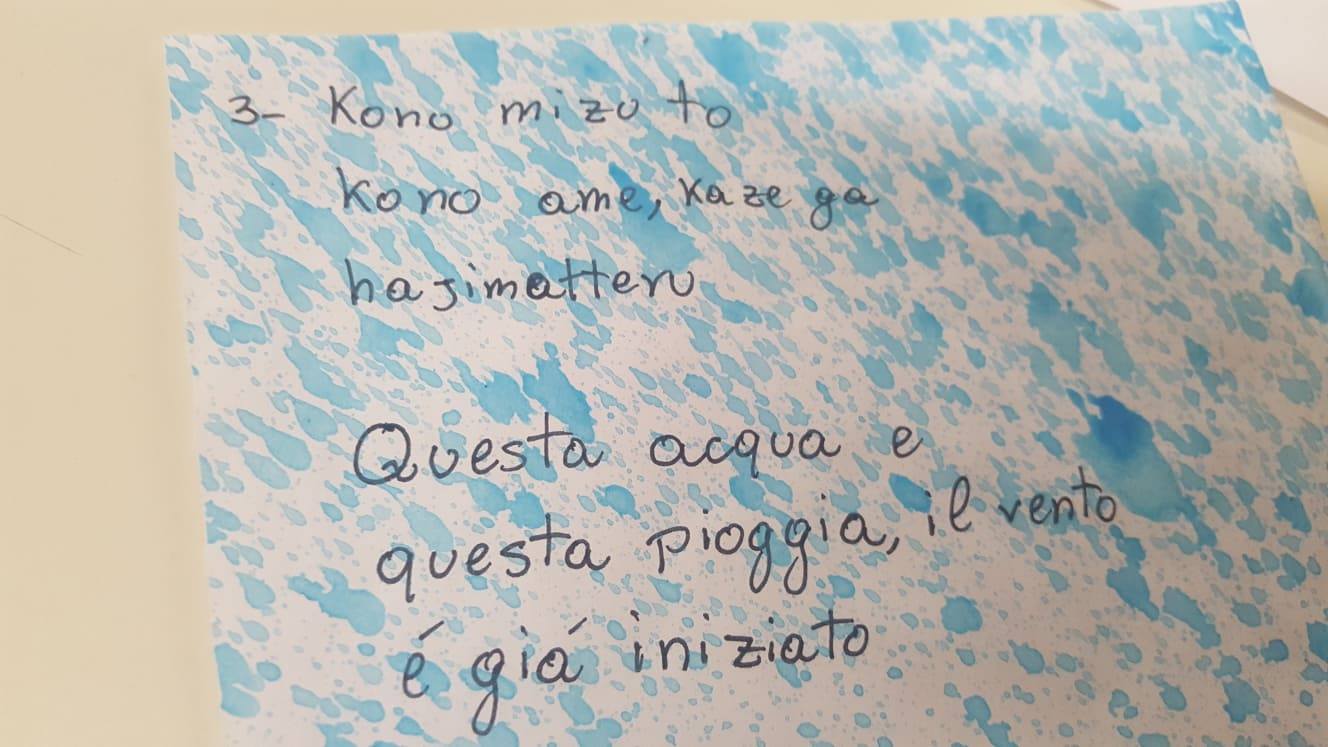 3- Kono mizu to
kono ame, kaze ga
hajimatteru
Questa acqua e
questa pioggia, il vento
é giá iniziato